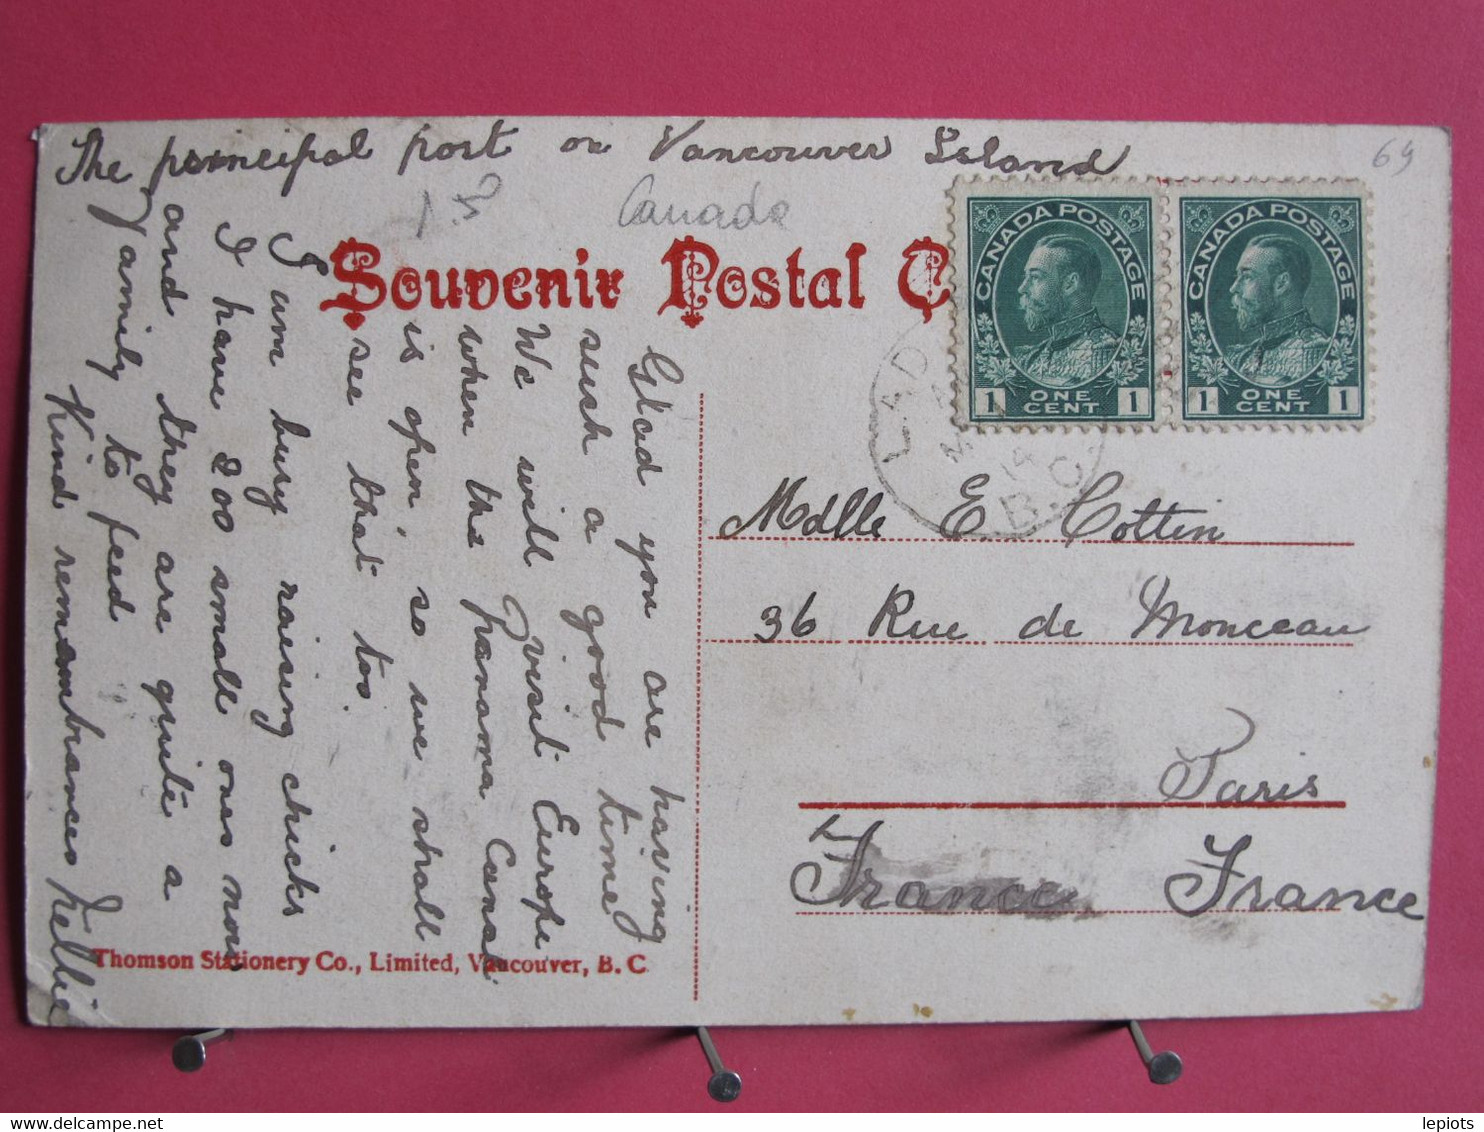 The principal port on Vancouver Island
69
Canada
Souvenir Postal C
CANADA POSTAGE
1 ONE CENT 1
CANADA POSTAGE
1 ONE CENT 1
LAD
M
14
B.C.
Glad you are having
such a good time
We will visit Europe
when the Panama Canal
is open, so we shall
see that too.
I am busy raising chicks
I have 200 small ones now
and they are quite a
family to feed
Kind remembrances Nellie
Mdlle E Cottin
36 Rue de Monceau
Paris
France France
Thomson Stationery Co., Limited, Vancouver, B. C.
lepiots